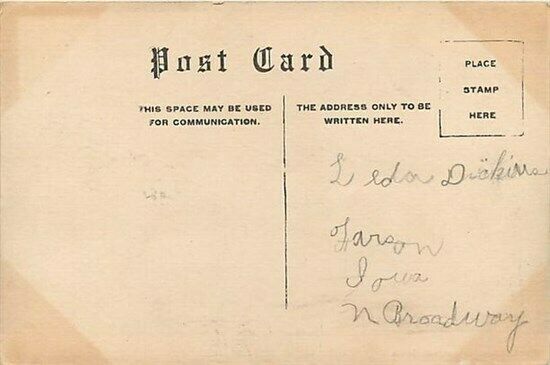 Post Card
THIS SPACE MAY BE USED
FOR COMMUNICATION.
THE ADDRESS ONLY TO BE
WRITTEN HERE.
PLACE
STAMP
HERE
Leda Dickins
Farson
Iowa
N Broadway